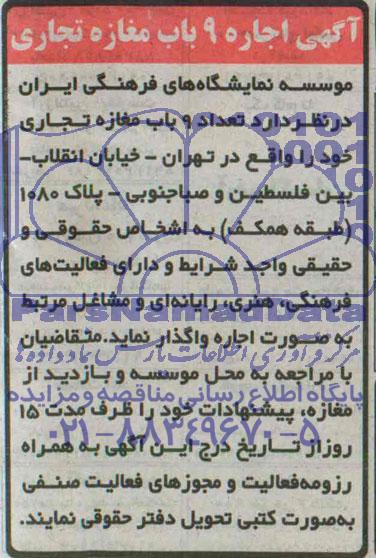 آگهی اجاره ۹ باب مغازه تجاری
موسسه نمایشگاه‌های فرهنگی ایران
درنظر دارد تعداد ۹ باب مغازه تجاری
خود را واقع در تهران - خیابان انقلاب-
بین فلسطین و صباجنوبی - پلاک ۱۰۸۰
(طبقه همکف) به اشخاص حقوقی و
حقیقی واجد شرایط و دارای فعالیت‌های
فرهنگی، هنری، رایانه‌ای و مشاغل مرتبط
ParsNamadData
به صورت اجاره واگذار نماید. متقاضیان
مرکز فرآوری اطلاعات پارس نماد داده‌ها
با مراجعه به محل موسسه و بازدید از
پایگاه اطلاع رسانی مناقصه و مزایده
مغازه، پیشنهادات خود را ظرف مدت ۱۵
۰۲۱-۸۸۳۴۹۶۷۰-۵
روز از تاریخ درج این آگهی به همراه
رزومه فعالیت و مجوزهای فعالیت صنفی
به‌صورت کتبی تحویل دفتر حقوقی نمایند.